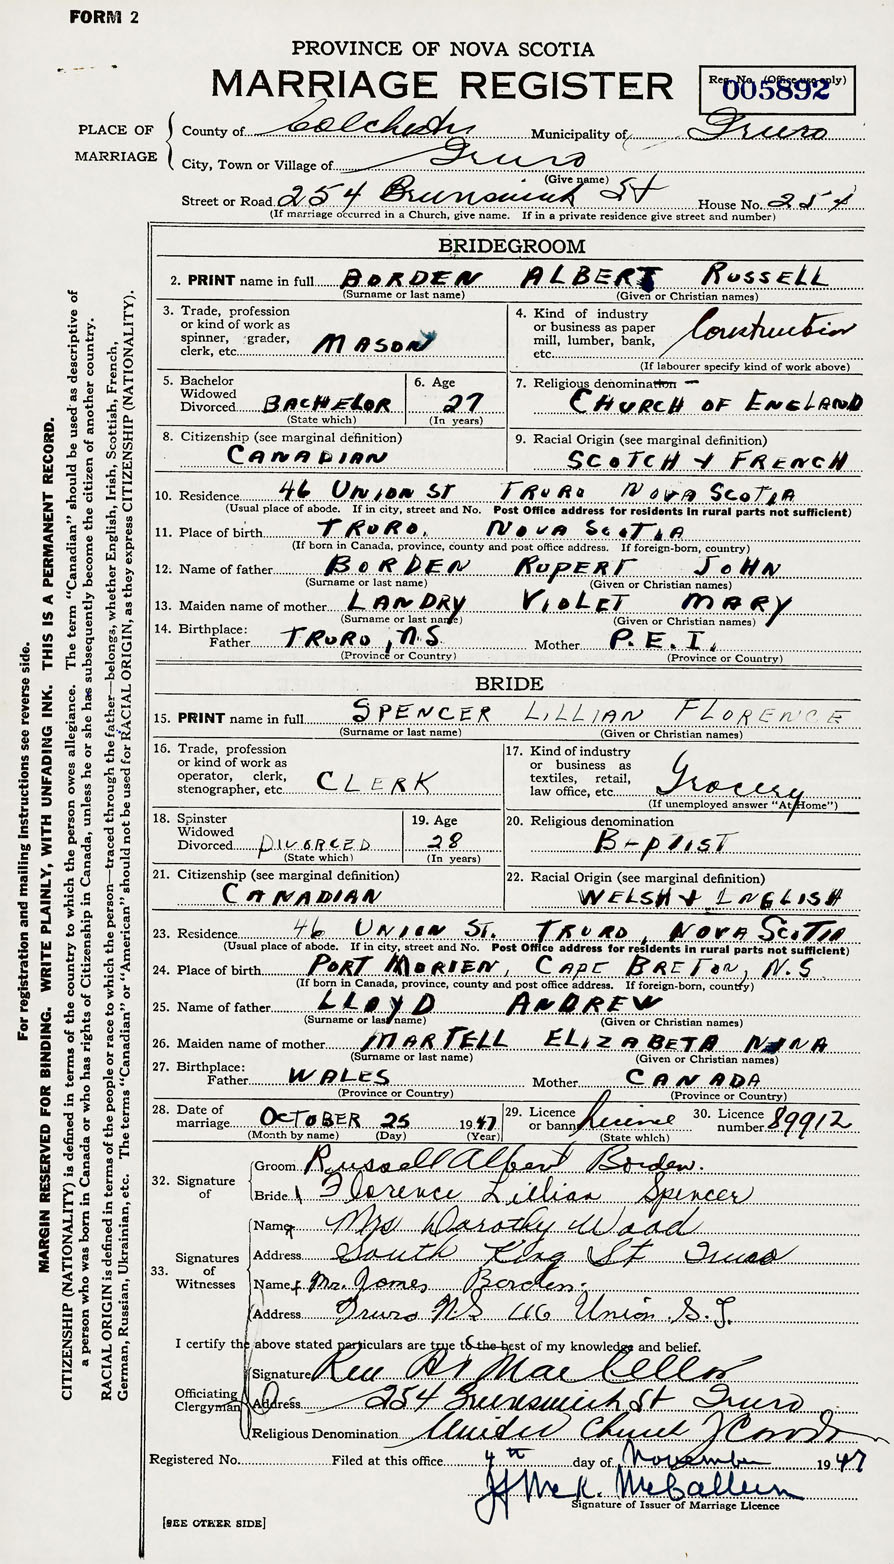 FORM 2
PROVINCE OF NOVA SCOTIA
MARRIAGE REGISTER
Reg. No. (Office use only)
005892
PLACE OF MARRIAGE
County of Colchester Municipality of Truro
City, Town or Village of Truro
(Give name)
Street or Road 254 Brunswick St House No. 254
(If marriage occurred in a Church, give name. If in a private residence give street and number)
BRIDEGROOM
2. PRINT name in full BORDEN ALBERT RUSSELL
(Surname or last name) (Given or Christian names)
3. Trade, profession or kind of work as spinner, grader, clerk, etc. MASON
4. Kind of industry or business as paper mill, lumber, bank, etc. Construction
(If labourer specify kind of work above)
5. Bachelor Widowed Divorced BACHELOR
(State which)
6. Age 27
(In years)
7. Religious denomination CHURCH OF ENGLAND
8. Citizenship (see marginal definition) CANADIAN
9. Racial Origin (see marginal definition) SCOTCH & FRENCH
10. Residence 46 UNION ST TRURO NOVA SCOTIA
(Usual place of abode. If in city, street and No. Post Office address for residents in rural parts not sufficient)
11. Place of birth TRURO, NOVA SCOTIA
(If born in Canada, province, county and post office address. If foreign-born, country)
12. Name of father BORDEN RUPERT JOHN
(Surname or last name) (Given or Christian names)
13. Maiden name of mother LANDRY VIOLET MARY
(Surname or last name) (Given or Christian names)
14. Birthplace: Father TRURO, N.S Mother P.E.I.
(Province or Country) (Province or Country)
BRIDE
15. PRINT name in full SPENCER LILLIAN FLORENCE
(Surname or last name) (Given or Christian names)
16. Trade, profession or kind of work as operator, clerk, stenographer, etc. CLERK
17. Kind of industry or business as textiles, retail, law office, etc. Grocery
(If unemployed answer "At Home")
18. Spinster Widowed Divorced DIVORCED
(State which)
19. Age 28
(In years)
20. Religious denomination BAPTIST
21. Citizenship (see marginal definition) CANADIAN
22. Racial Origin (see marginal definition) WELSH & ENGLISH
23. Residence 46 UNION ST. TRURO, NOVA SCOTIA
(Usual place of abode. If in city, street and No. Post Office address for residents in rural parts not sufficient)
24. Place of birth PORT MORIEN, CAPE BRETON, N.S
(If born in Canada, province, county and post office address. If foreign-born, country)
25. Name of father LLOYD ANDREW
(Surname or last name) (Given or Christian names)
26. Maiden name of mother MARTELL ELIZABETA NINA
(Surname or last name) (Given or Christian names)
27. Birthplace: Father WALES Mother CANADA
(Province or Country) (Province or Country)
28. Date of marriage OCTOBER 25 1947
(Month by name) (Day) (Year)
29. Licence or bann license
(State which)
30. Licence number 89912
32. Signature of
Groom Russell Albert Borden.
Bride Florence Lillian Spencer
33. Signatures of Witnesses
Name Mrs Dorothy Wood
Address South King St Truro
Name Mr. James Borden.
Address Truro N.S 46 Union. S.T.
I certify the above stated particulars are true to the best of my knowledge and belief.
Officiating Clergyman
Signature Rev MacKellar
Address 254 Brunswick St Truro
Religious Denomination United Church of Canada
Registered No. Filed at this office 4th day of November 1947
McCallum
Signature of Issuer of Marriage Licence
[SEE OTHER SIDE]
For registration and mailing instructions see reverse side.
MARGIN RESERVED FOR BINDING. WRITE PLAINLY, WITH UNFADING INK. THIS IS A PERMANENT RECORD.
CITIZENSHIP (NATIONALITY) is defined in terms of the country to which the person owes allegiance. The term "Canadian" should be used as descriptive of
a person who was born in Canada or who has rights of Citizenship in Canada, unless he or she has subsequently become the citizen of another country.
RACIAL ORIGIN is defined in terms of the people or race to which the person—traced through the father—belongs, whether English, Irish, Scottish, French,
German, Russian, Ukrainian, etc. The terms "Canadian" or "American" should not be used for RACIAL ORIGIN, as they express CITIZENSHIP (NATIONALITY).